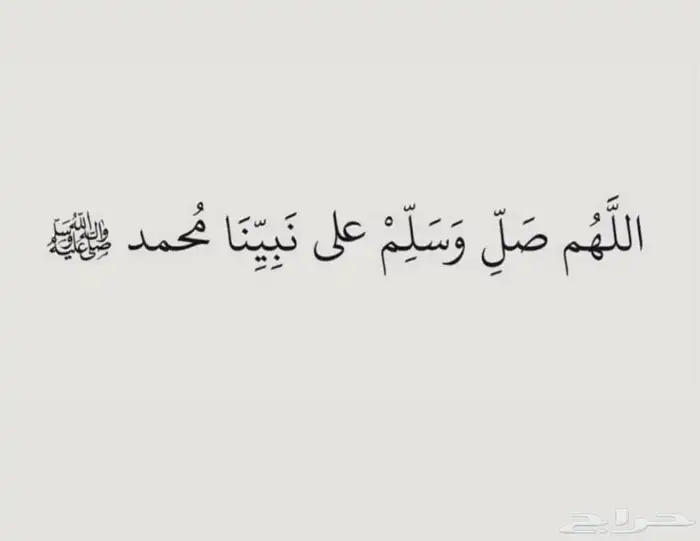 اللَّهُم صَلِّ وَسَلِّمْ على نَبِيِّنَا مُحمد ﷺ
حراج